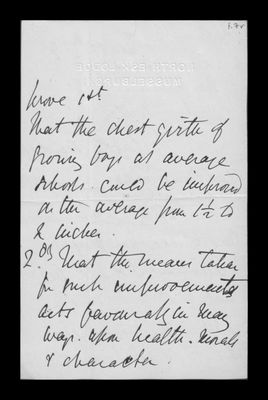 8.7v
NORTH ESK LODGE
MUSSELBURGH
prove 1st
that the chest girth of
growing boys at average
schools could be improved
on the average from 1½ to
2 inches.
2nd that the means taken
for such improvements
acts favourably in many
ways upon health. morals
& character.